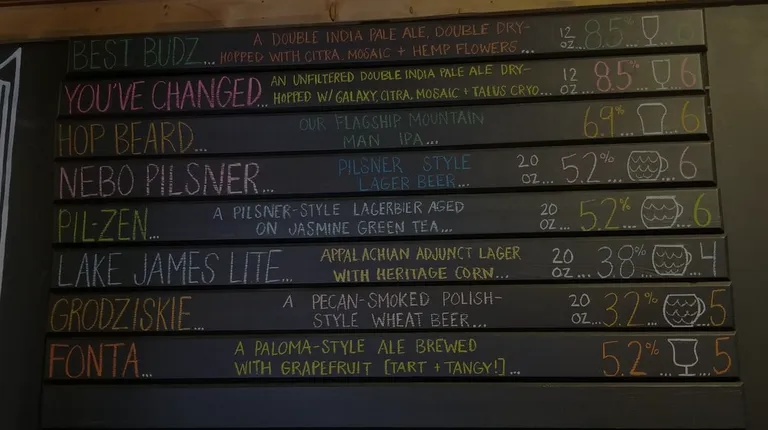 BEST BUDZ... A DOUBLE INDIA PALE ALE, DOUBLE DRY- 12 8.5%
HOPPED WITH CITRA, MOSAIC + HEMP FLOWERS... OZ...
YOU'VE CHANGED... AN UNFILTERED DOUBLE INDIA PALE ALE DRY- 12 8.5% 6
HOPPED W/ GALAXY, CITRA, MOSAIC + TALUS CRYO... OZ...
HOP BEARD... OUR FLAGSHIP MOUNTAIN 6.9% 6
MAN IPA...
NEBO PILSNER... PILSNER STYLE 20 5.2% 6
LAGER BEER... OZ...
PIL-ZEN... A PILSNER-STYLE LAGERBIER AGED 20 5.2% 6
ON JASMINE GREEN TEA... OZ...
LAKE JAMES LITE... APPALACHIAN ADJUNCT LAGER 20 3.8% 4
WITH HERITAGE CORN... OZ...
GRODZISKIE... A PECAN-SMOKED POLISH- 20 3.2% 5
STYLE WHEAT BEER... OZ...
FONTA... A PALOMA-STYLE ALE BREWED 5.2% 5
WITH GRAPEFRUIT [TART + TANGY!]...